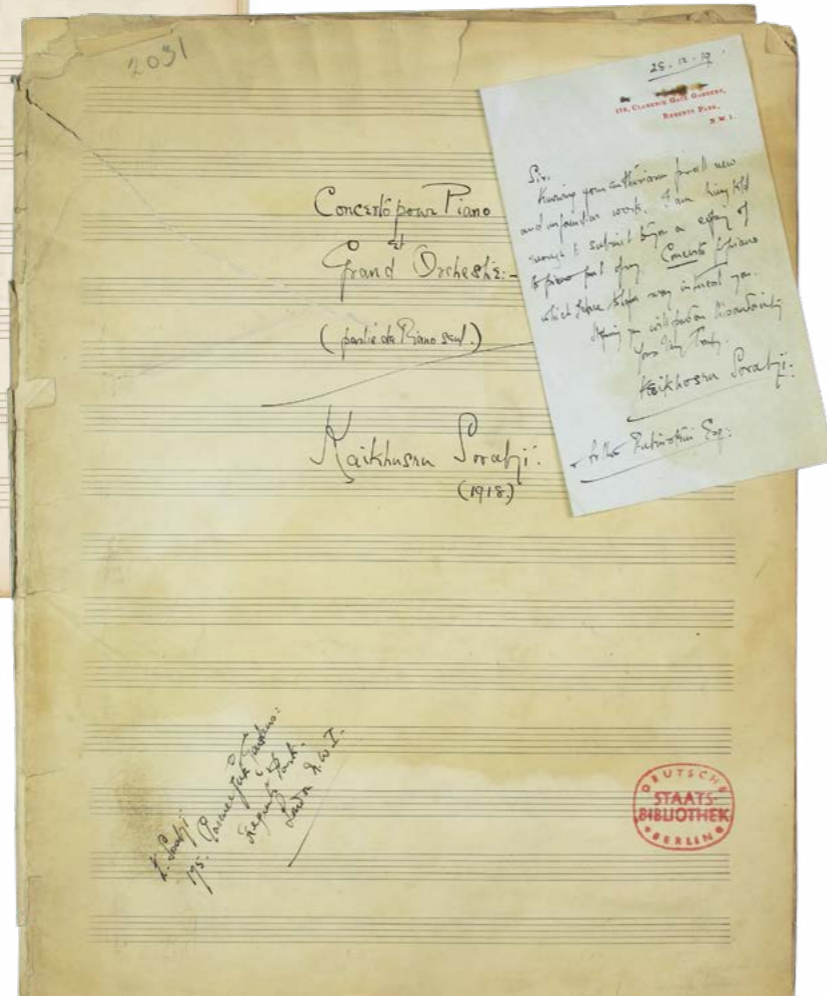 2031
Concerto pour Piano
et
Grand Orchestre:-
(partie de Piano seul.)
Kaikhusru Sorabji.
(1918)
25-12-19
175, Clarence Gate Gardens,
Regents Park,
N.W.1.
Sir,
Knowing your enthusiasm for all new
and unfamiliar work, I am
enough to submit to you a copy of
piano part of my Concerto for piano
which I hope may interest you.
Hoping you will pardon
Yours Very Truly,
Kaikhosru Sorabji.
Arthur Rubinstein Esq:
K. Sorabji
175. Clarence Gate Gardens:
Regents Park.
London N.W.1.
DEUTSCHE
STAATS-
BIBLIOTHEK
BERLIN